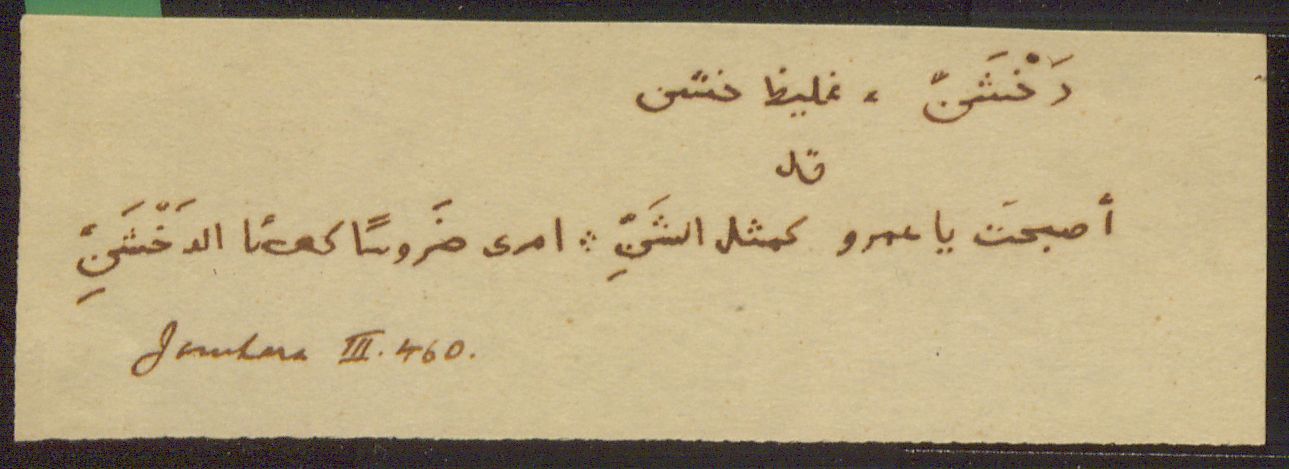 دَخْشَنّ ، غليظ خشن
قال
أصبحتَ يا عمرو كمثل الشَنِّ ∴ امرى ضَروسًا كعصا الدَخْشَنِّ
Jamhara III. 460.